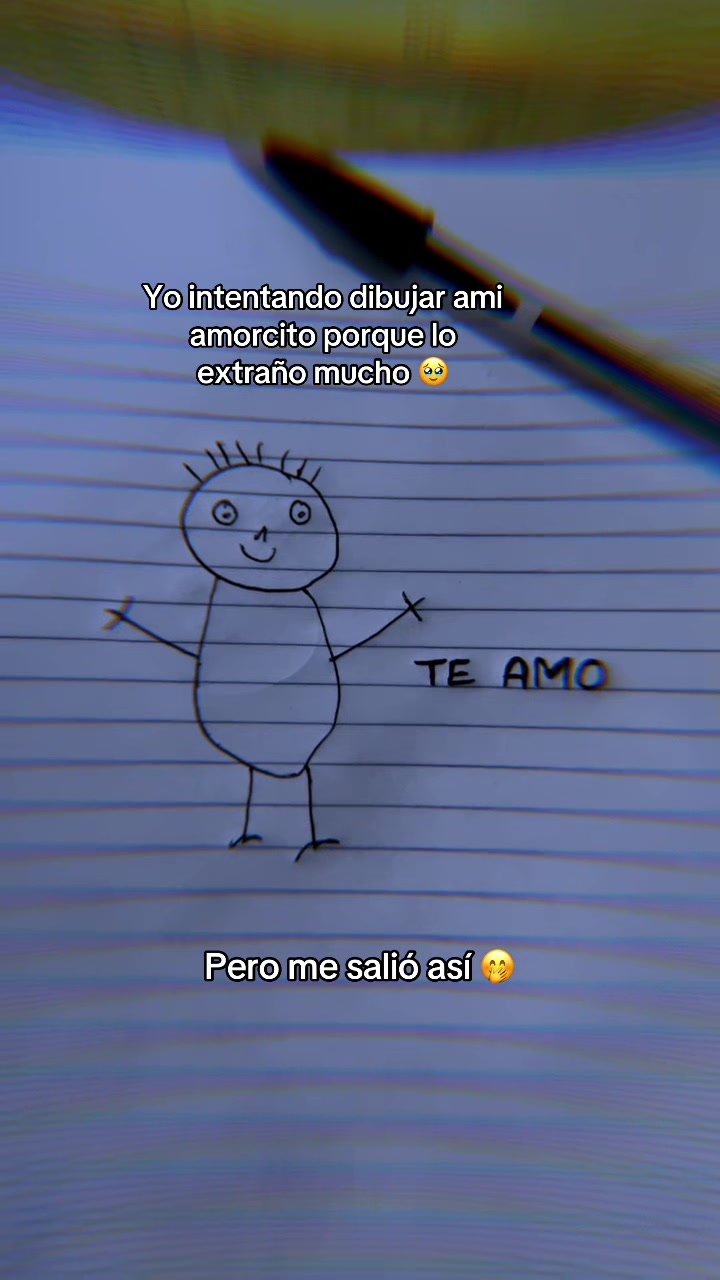 Yo intentando dibujar ami
amorcito porque lo
extraño mucho 🥹
TE AMO
Pero me salió así 🤭